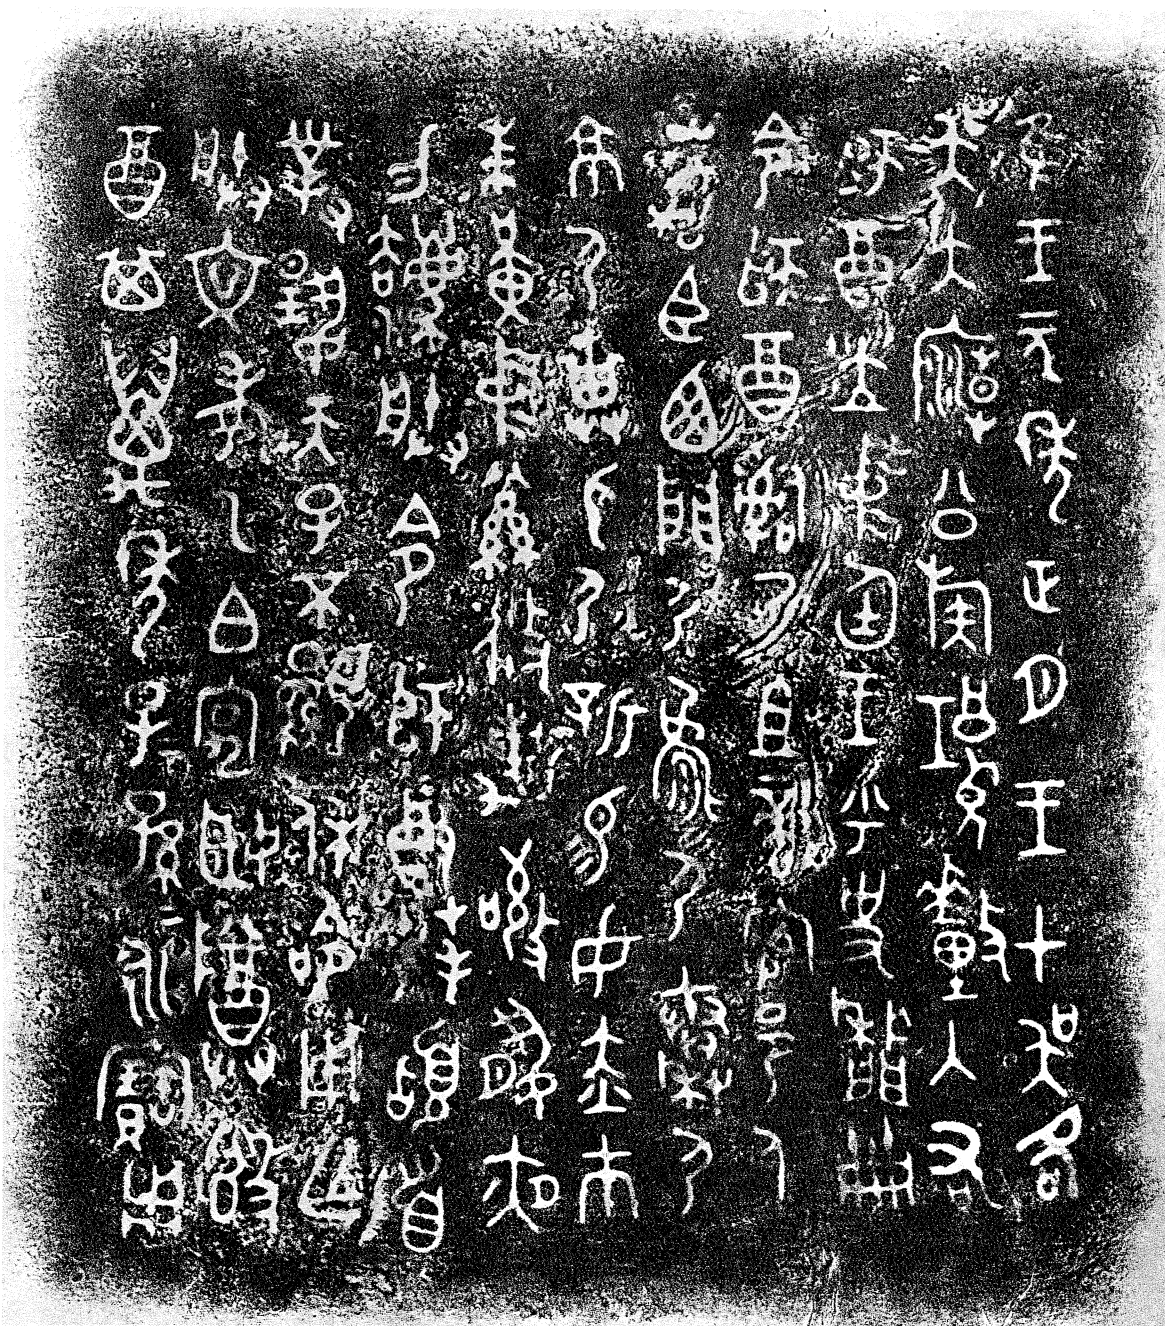 隹王元年正月王才吳各
吳大廟公族𤨂釐入右
師酉立中廷王乎史冊
命師酉𤔲乃且啻官邑人
虎臣西門尸夐尸秦尸
京尸畁身尸新易女赤巿
朱黃中絅攸勒敬夙夜
勿灋朕令師酉拜𩒨首
對揚天子不顯休令用乍
朕文考乙白宄姬尊𣪘
酉其萬年子孫＝永寶用